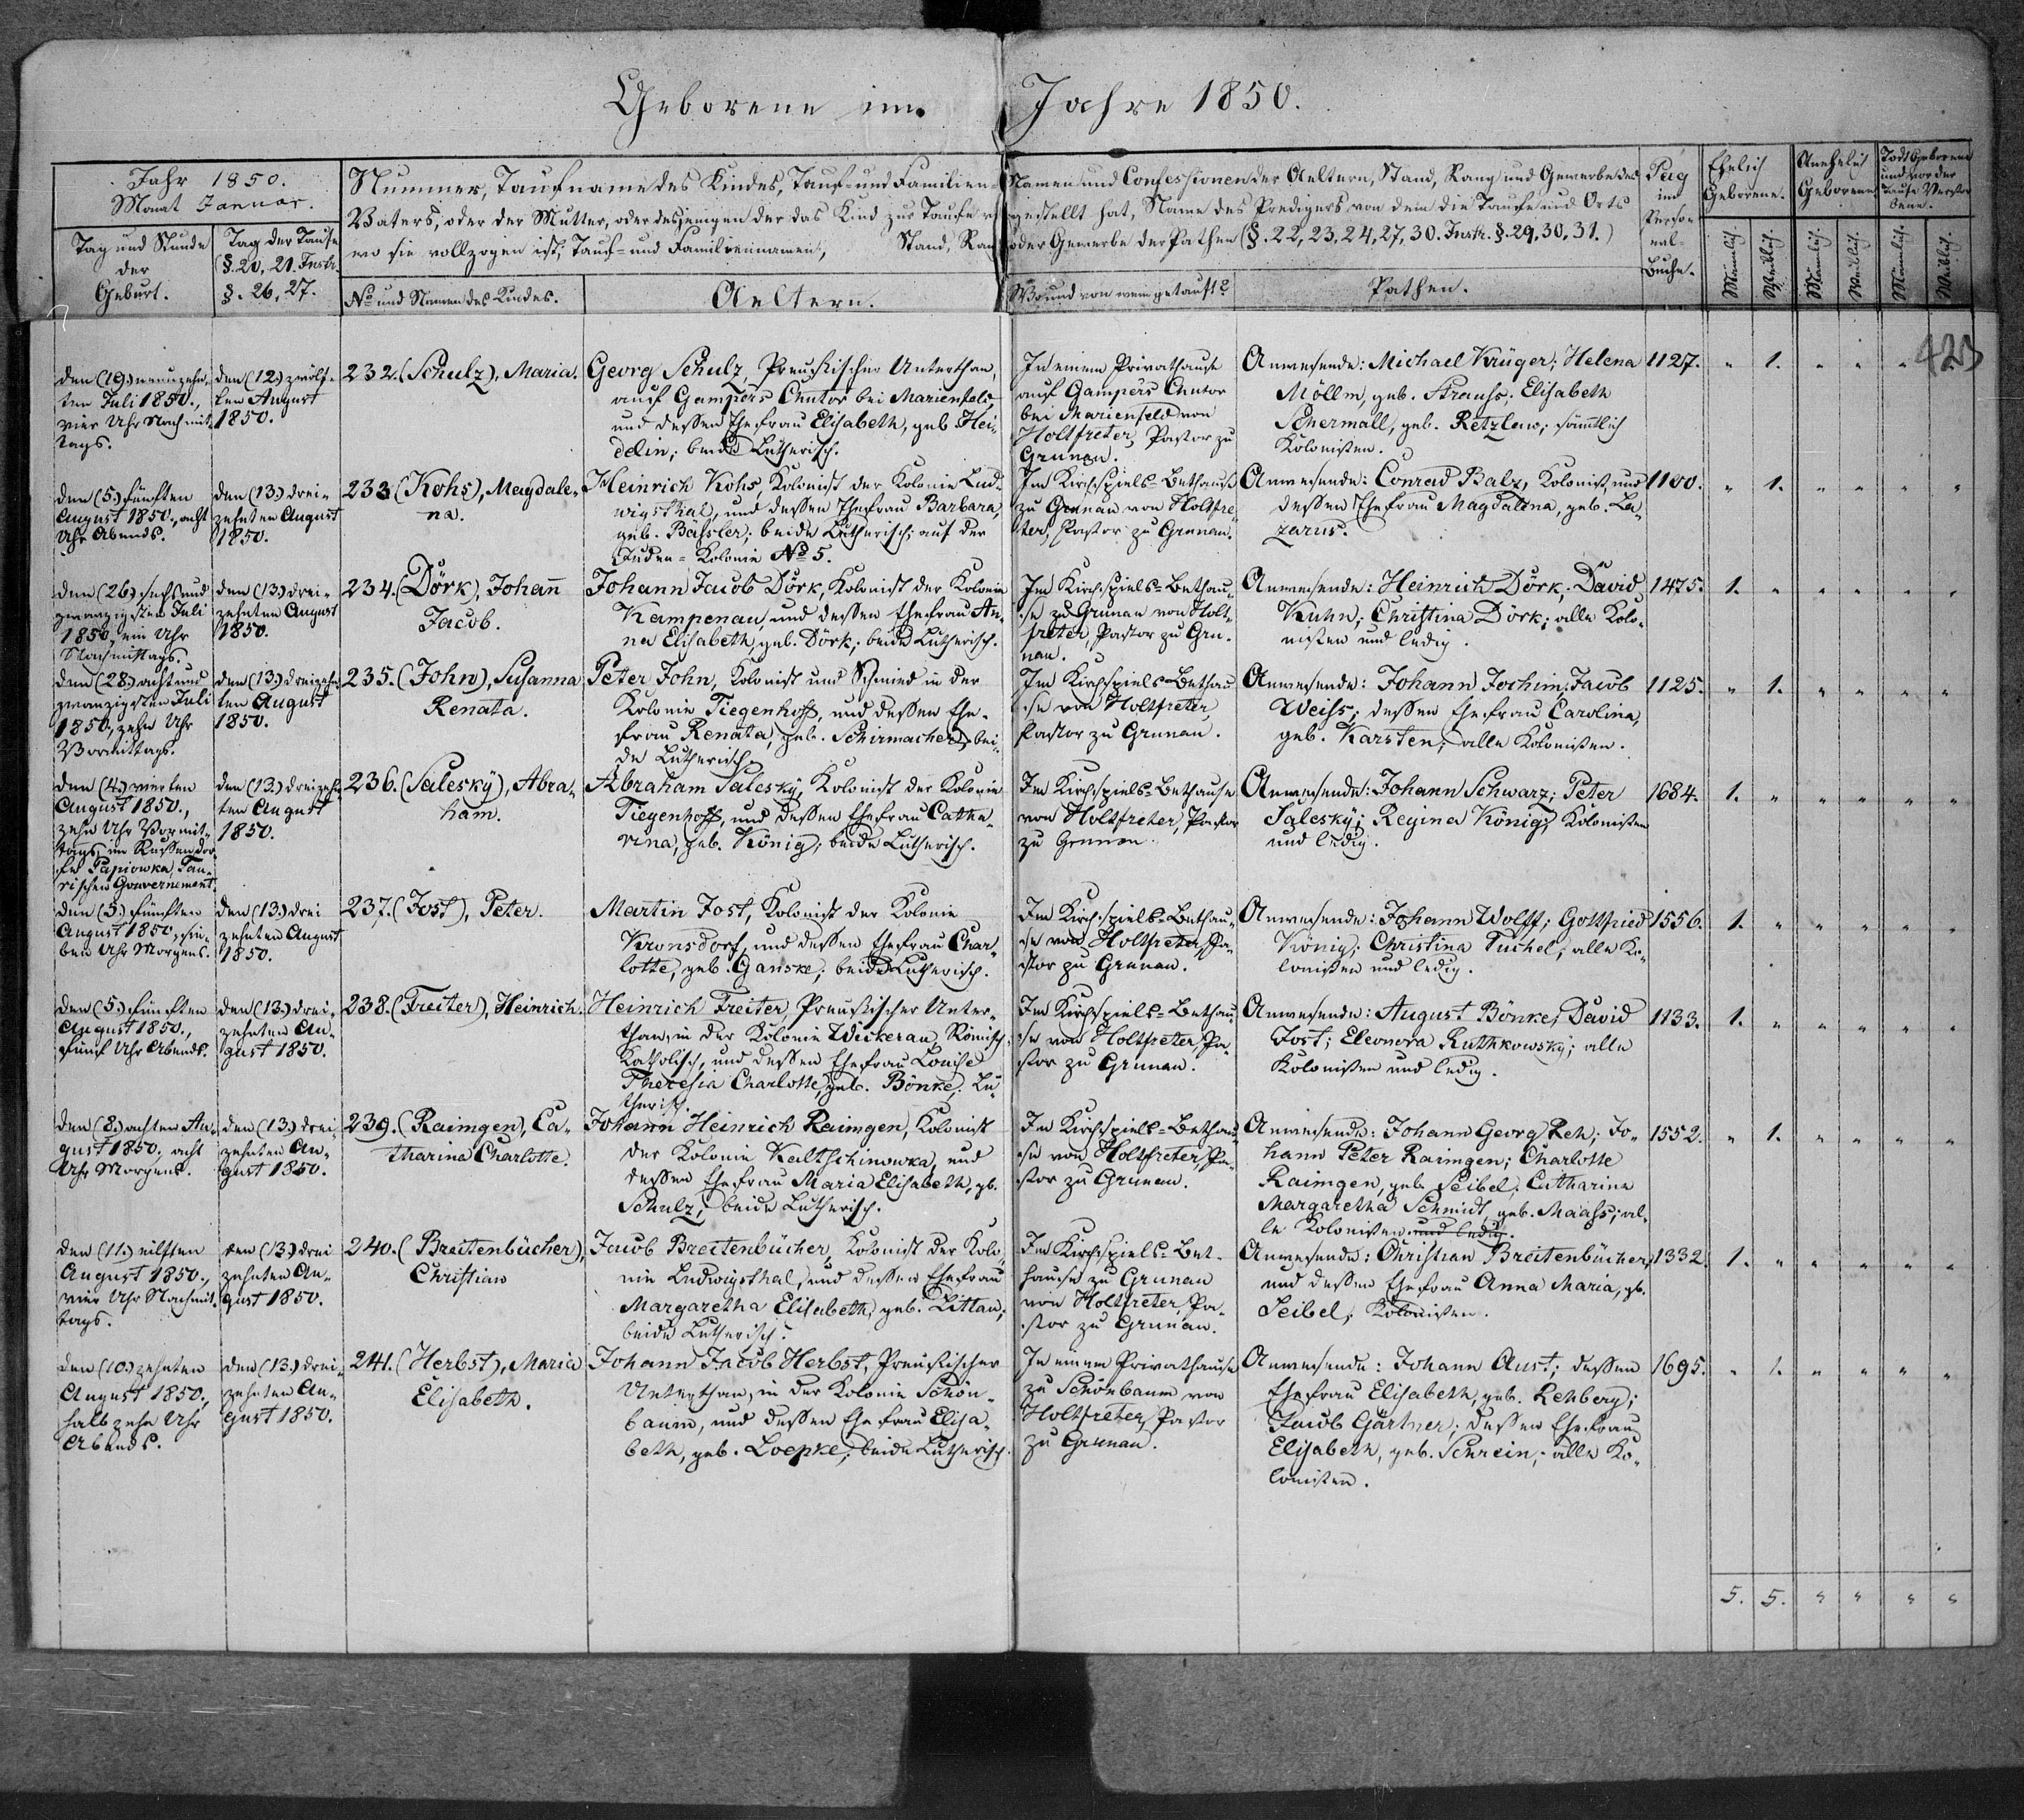 Geborene im Jahre 1850.
Jahr 1850.
Monat Januar.
Tag und Stunde
der
Geburt.
Tag der Taufe
(§. 20, 21. Instr.
§. 26, 27.
Nummer, Taufname des Kindes, Tauf- und Familien-
Vaters, oder der Mutter, oder desjenigen der das Kind zur Taufe
wo sie vollzogen ist, Tauf- und Familiennamen, Stand, Ran
No und Namen des Kindes.
Aeltern.
Namen und Confessionen der Aeltern, Stand, Rang und Gewerbe des
gestellt hat, Name des Predigers von dem die Taufe und Orts
oder Gewerbe der Pathen (§. 22, 23, 24, 27, 30. Instr. §. 29, 30, 31.)
Wo und von wem getauft?
Pathen.
Pag
im
Perso-
nal-
Buche.
Ehelich
Geborene.
Unehelich
Geborene.
Todt Geborene
und vor der
Taufe Verstor
bene.
Männlich.
Weiblich.
Männlich.
Weiblich.
Männlich.
Weiblich.
423
den (19.) neunzehn-
ten Juli 1850.,
vier Uhr Nachmit-
tags.
den (12.) zwölf-
ten August
1850.
232. (Schulz), Maria.
Georg Schulz, Preußischer Unterthan,
auf Gampers Chutor bei Marienfeld,
und dessen Ehefrau Elisabeth, geb. Hei-
delin; beide Lutherisch.
In einem Privathause
auf Gampers Chutor
bei Marienfeld von
Holtfreter, Pastor zu
Grunau.
Anwesende: Michael Krüger; Helena
Möllm, geb. Strauss; Elisabeth
Schermall, geb. Retzlaw; sämmtlich
Kolonisten.
1127. " 1. " " "
den (5.) fünften
August 1850., acht
Uhr Abends.
den (13.) drei-
zehnten August
1850.
233 (Kohs), Magdale-
na.
Heinrich Kohs, Kolonist der Kolonie Lud-
wigsthal, und dessen Ehefrau Barbara,
geb. Bässler; beide Lutherisch; auf der
Juden-Kolonie No 5.
Im Kirchspiels-Bethause
zu Grunau von Holtfre-
ter, Pastor zu Grunau.
Anwesende: Conrad Balz, Kolonist, und
dessen Ehefrau Magdalena, geb. La-
zarus.
1100. " 1. " " " "
den (26.) sechs und
zwanzigsten Juli
1850., ein Uhr
Nachmittags.
den (13.) drei-
zehnten August
1850.
234. (Dörk), Johann
Jacob.
Johann Jacob Dörk, Kolonist der Kolonie
Kampenau, und dessen Ehefrau An-
na Elisabeth, geb. Dörk; beide Lutherisch.
Im Kirchspiels-Bethau-
se zu Grunau von Holt-
freter, Pastor zu Gru-
nau.
Anwesende: Heinrich Dörk; David
Kuhn; Christina Dörk; alle Kolo-
nisten und ledig.
1475. 1. " " " " "
den (28.) acht und
zwanzigsten Juli
1850., zehn Uhr
Vormittags.
den (13.) dreizehn-
ten August
1850.
235. (John), Susanna
Renata.
Peter John, Kolonist und Schmied in der
Kolonie Tiegenhoff, und dessen Ehe-
frau Renata, geb. Schirmacher; bei-
de Lutherisch.
Im Kirchspiels-Bethau-
se von Holtfreter,
Pastor zu Grunau.
Anwesende: Johann Jochim; Jacob
Weiss; dessen Ehefrau Carolina,
geb. Karsten; alle Kolonisten.
1125. " 1. " " " "
den (4.) vierten
August 1850.,
zehn Uhr Vormit-
tags, im Russendor-
fe Papiowka, Tau-
rischen Gouvernement.
den (13.) dreizehn-
ten August
1850.
236. (Salesky), Abra-
ham.
Abraham Salesky, Kolonist der Kolonie
Tiegenhoff, und dessen Ehefrau Catha-
rina, geb. König; beide Lutherisch.
Im Kirchspiels-Bethause
von Holtfreter, Pastor
zu Grunau.
Anwesende: Johann Schwarz; Peter
Salesky; Regina König; Kolonisten
und ledig.
1684. 1. " " " " "
den (5.) fünften
August 1850., sie-
ben Uhr Morgens.
den (13.) drei
zehnten August
1850.
237. (Jost), Peter.
Martin Jost, Kolonist der Kolonie
Kronsdorf, und dessen Ehefrau Char-
lotte, geb. Ganske; beide Lutherisch.
Im Kirchspiels-Bethau-
se von Holtfreter, Pa-
stor zu Grunau.
Anwesende: Johann Wolff; Gottfried
König; Christina Tuchel; alle Ko-
lonisten und ledig.
1556. 1. " " " " "
den (5.) fünften
August 1850.,
fünf Uhr Abends.
den (13.) drei-
zehnten Au-
gust 1850.
238. (Treiter), Heinrich.
Heinrich Treiter, Preußischer Unter-
than, in der Kolonie Wickerau, Römisch
Katholisch, und dessen Ehefrau Louise
Theresia Charlotte, geb. Bönke; Lu-
therisch.
Im Kirchspiels-Bethau-
se von Holtfreter, Pa-
stor zu Grunau.
Anwesende: August Bönke; David
Jost; Eleonora Ruthkowsky; alle
Kolonisten und ledig.
1133. 1. " " " " "
den (8.) achten Au-
gust 1850., acht
Uhr Morgens.
den (13.) drei-
zehnten Au-
gust 1850.
239. (Raimgen), Ca-
tharina Charlotte.
Johann Heinrich Raimgen, Kolonist
der Kolonie Kaltschinowka, und
dessen Ehefrau Maria Elisabeth, gb.
Schulz; beide Lutherisch.
Im Kirchspiels-Bethau-
se von Holtfreter, Pa-
stor zu Grunau.
Anwesende: Johann Georg Reh; Jo-
hann Peter Raimgen; Charlotte
Raimgen, geb. Seibel; Catharina
Margaretha Schmidt, geb. Maass; al-
le Kolonisten und ledig.
1552. " 1. " " " "
den (11.) eilften
August 1850.,
vier Uhr Nachmit-
tags.
den (13.) drei
zehnten Au-
gust 1850.
240. (Breitenbücher),
Christian
Jacob Breitenbücher, Kolonist der Kolo-
nie Ludwigsthal, und dessen Ehefrau
Margaretha Elisabeth, geb. Littau;
beide Lutherisch.
Im Kirchspiels-Bet-
hause zu Grunau
von Holtfreter, Pa-
stor zu Grunau.
Anwesende: Christian Breitenbücher,
und dessen Ehefrau Anna Maria, gb.
Seibel; Kolonisten.
1332. 1. " " " " "
den (10.) zehnten
August 1850.,
halb zehn Uhr
Abends.
den (13.) drei-
zehnten Au-
gust 1850.
241. (Herbst), Maria
Elisabeth.
Johann Jacob Herbst, Preußischer
Unterthan, in der Kolonie Schön-
baum, und dessen Ehefrau Elisa-
beth, geb. Loepke; beide Lutherisch.
In einem Privathause
zu Schönbaum von
Holtfreter, Pastor
zu Grunau.
Anwesende: Johann Aust; dessen
Ehefrau Elisabeth, geb. Rehberg;
Jacob Gärtner; dessen Ehefrau
Elisabeth, geb. Schrein; alle Ko-
lonisten.
1695. " 1. " " " "
5. 5. " " " "